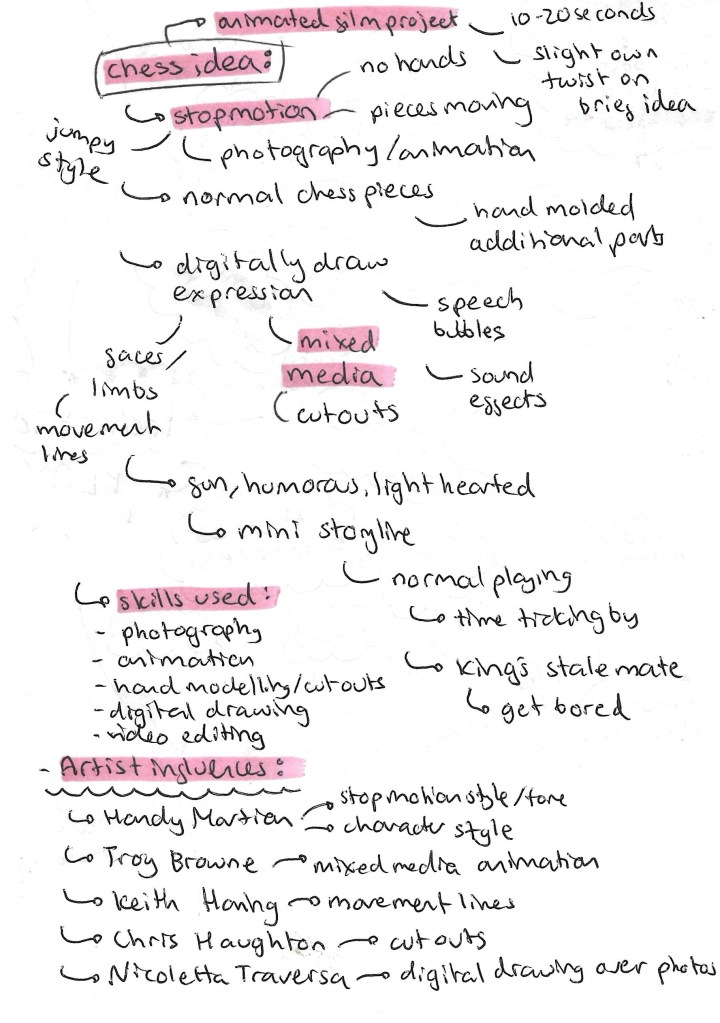 animated film project
10-20 seconds
chess idea:
no hands
slight own
twist on
brief idea
stopmotion
pieces moving
jumpy
style
photography/animation
normal chess pieces
hand molded
additional parts
digitally draw
expression
speech
bubbles
faces/
limbs
mixed
media
sound
effects
cutouts
movement
lines
fun, humorous, light hearted
mini storyline
normal playing
time ticking by
skills used:
- photography
- animation
- hand modelling/cutouts
- digital drawing
- video editing
king's stalemate
get bored
- Artist influences:
Handy Martian
stopmotion style/tone
character style
Troy Browne
mixed media animation
Keith Haring
movement lines
Chris Haughton
cutouts
Nicoletta Traversa
digital drawing over photos